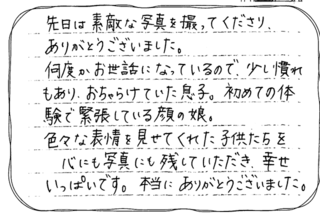 先日は素敵な写真を撮ってくださり、
ありがとうございました。
何度かお世話になっているので、少し慣れ
もあり、おちゃらけていた息子。初めての体
験で緊張している顔の娘。
色々な表情を見せてくれた子供たちを
心にも写真にも残していただき、幸せ
いっぱいです。本当にありがとうございました。